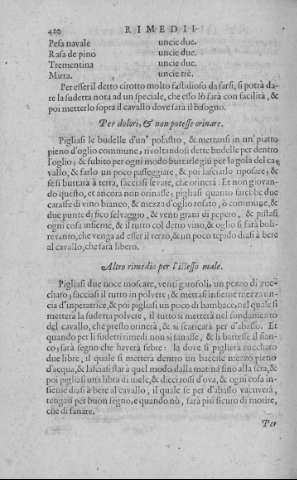 420 RIMEDII
Pesa navale uncie due.
Rasa de pino uncie due.
Trementina uncie due.
Mirra. uncie tre.
Per esser il detto cirotto molto fastidioso da farsi, si potrà da-
re la sudetta nota ad un speciale, che esso lo farà con facilità, &
poi metterlo sopra il cavallo dove farà il bisogno.
Per dolori, & non potesse orinare.
Pigliasi le budelle d'un' polastro, & mettansi in un' piatto
pieno d'oglio commune, rivoltandosi dette budelle per dentro
l'oglio; & subito per ogni modo butarle giù per la gola del ca-
vallo, & farlo un poco passeggiare, & poi lasciarlo riposare, &
se si buttarà à terra, facciasi levare, che orinerà. Et non giovan-
do questo, et ancora non orinasse; pigliasi quanto sarebbe due
caraffe di vino bianco, & mezza d'oglio rosato, ò commune, &
due punte di fico selvaggio, & venti grani di pepero, & pistasi
ogni cosa insieme, & il tutto col detto vino, & oglio si farà boli-
re tanto, che venga ad esser il terzo, & un poco tepido diasi à bere
al cavallo, che farà libero.
Altro rimedio per l'istesso male.
Pigliasi due noce moscate, venti garofoli, un pezzo di zuc-
charo, facciasi il tutto in polvere, & mettasi insieme mezza un-
cia d'imperatrice, & poi pigliasi un poco di bambace, nel quale si
metterà la sudetta polvere, il tutto si metterà nel fondamento
del cavallo, che presto orinerà, & si scaricarà per d'abasso. Et
quando per li sudetti rimedi non si sanasse, & li battesse il fian-
co; farà segno che haverà febre: la dove si piglierà zuccharo
due libre, il quale si metterà dentro un baccile mezzo pieno
d'acqua, & lasciasi star à quel modo dalla matina sino alla sera, &
poi pigliasi una libra di mele, & dieci rossi d'ova, & ogni cosa in-
sieme diasi à bere al cavallo, il quale se per d'abasso vacuverà,
tengasi per buon segno, e quando nò, farà più sicuro di morire,
che di sanare.
Per